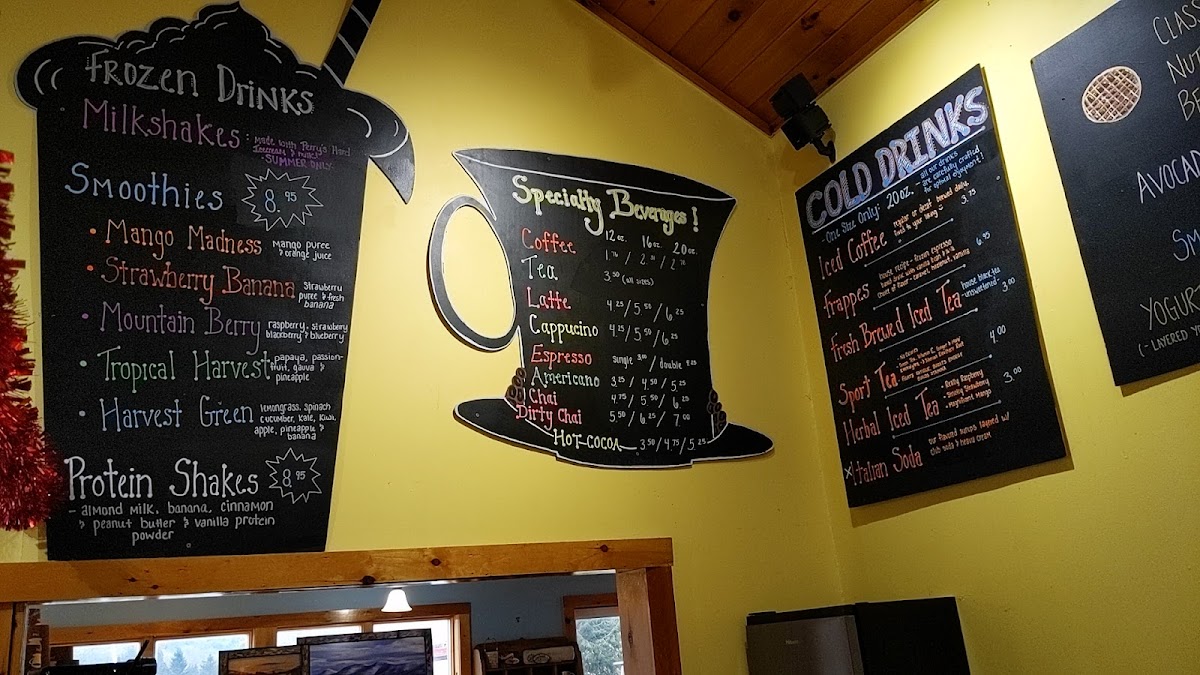 Frozen Drinks
Milkshakes: made with Perry's Hard
Icecream & milk!
-SUMMER ONLY-
Smoothies 8.95
• Mango Madness mango puree
& orange juice
• Strawberry Banana strawberry
puree & fresh
banana
• Mountain Berry raspberry, strawberry
blackberry & blueberry
• Tropical Harvest papaya, passion-
fruit, gauva &
pineapple
• Harvest Green lemongrass, spinach
cucumber, kale, kiwi,
apple, pineapple &
banana
Protein Shakes 8.95
- almond milk, banana, cinnamon
& peanut butter & vanilla protein
powder
Specialty Beverages!
12oz. 16oz. 20oz.
Coffee
Tea 3.50 (all sizes)
Latte 4.25/5.50/6.25
Cappucino 4.25/5.50/6.25
Espresso single 3.00/double
Americano 3.25/4.50/5.25
Chai 4.75/5.50/6.25
Dirty Chai 5.50/6.25/7.00
HOT-COCOA 3.50/4.75/5.25
COLD DRINKS
- One Size Only: 20oz. - all our drinks
are carefully crafted
for optimal enjoyment!
Iced Coffee regular or decaf brewed daily 3.75
Frappes house recipe - frozen espresso 6.95
choice of flavor - caramel, hazelnut, vanilla
Fresh Brewed Iced Tea house black tea
-unsweetened- 3.00
Sport Tea 4.00
Herbal Iced Tea - Really Raspberry 3.00
- Smiling Strawberry
- Magnificent Mango
Italian Soda our flavored syrups layered w/
club soda & heavy cream
CLASS
NUT
BE
AVOCAD
SM
YOGUR
(- LAYERED